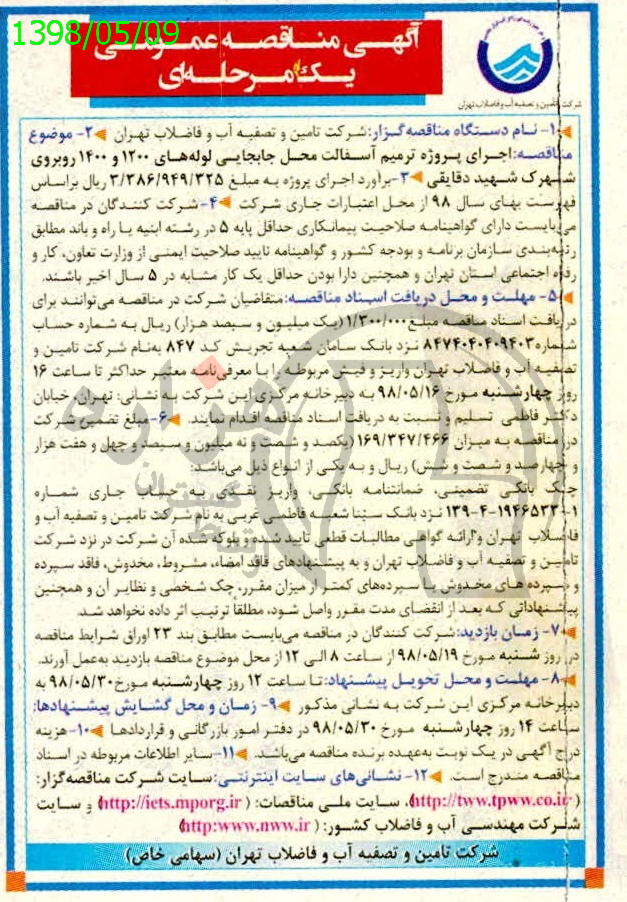 1398/05/09
آگهی مناقصه عمومی
یک مرحله‌ای
شرکت تامین و تصفیه آب و فاضلاب تهران
۱- نام دستگاه مناقصه‌گزار: شرکت تامین و تصفیه آب و فاضلاب تهران ۲- موضوع
مناقصه: اجرای پروژه ترمیم آسفالت محل جابجایی لوله‌های ۱۲۰۰ و ۱۴۰۰ روبروی
شهرک شهید دقایقی ۳- برآورد اجرای پروژه به مبلغ ۳/۳۸۶/۹۴۹/۳۲۵ ریال براساس
فهرست بهای سال ۹۸ از محل اعتبارات جاری شرکت ۴- شرکت کنندگان در مناقصه
می‌بایست دارای گواهینامه صلاحیت پیمانکاری حداقل پایه ۵ در رشته ابنیه یا راه و باند مطابق
رتبه‌بندی سازمان برنامه و بودجه کشور و گواهینامه تایید صلاحیت ایمنی از وزارت تعاون، کار و
رفاه اجتماعی استان تهران و همچنین دارا بودن حداقل یک کار مشابه در ۵ سال اخیر باشند.
۵- مهلت و محل دریافت اسناد مناقصه: متقاضیان شرکت در مناقصه می‌توانند برای
دریافت اسناد مناقصه مبلغ ۱/۳۰۰/۰۰۰ (یک میلیون و سیصد هزار) ریال به شماره حساب
شماره ۸۴۷۴۰۴۰۴۰۹۴۰۳ نزد بانک سامان شعبه تجریش کد ۸۴۷ به‌نام شرکت تامین و
تصفیه آب و فاضلاب تهران واریز و فیش مربوطه را با معرفی‌نامه معتبر حداکثر تا ساعت ۱۶
روز چهارشنبه مورخ ۹۸/۰۵/۱۶ به دبیرخانه مرکزی این شرکت به نشانی: تهران، خیابان
دکتر فاطمی تسلیم و نسبت به دریافت اسناد مناقصه اقدام نمایند. ۶- مبلغ تضمین شرکت
در مناقصه به میزان ۱۶۹/۳۴۷/۴۶۶ (یکصد و شصت و نه میلیون و سیصد و چهل و هفت هزار
و چهارصد و شصت و شش) ریال و به یکی از انواع ذیل می‌باشد:
چک بانکی تضمینی، ضمانتنامه بانکی، واریز نقدی به حساب جاری شماره
۱۳۹-۴-۱۹۴۶۵۳۳-۱ نزد بانک سینا شعبه فاطمی غربی به نام شرکت تامین و تصفیه آب و
فاضلاب تهران و ارائه گواهی مطالبات قطعی تایید شده و بلوکه شده آن شرکت در نزد شرکت
تامین و تصفیه آب و فاضلاب تهران و به پیشنهادهای فاقد امضاء، مشروط، مخدوش، فاقد سپرده
و سپرده های مخدوش یا سپرده‌های کمتر از میزان مقرر، چک شخصی و نظایر آن و همچنین
پیشنهاداتی که بعد از انقضای مدت مقرر واصل شود، مطلقاً ترتیب اثر داده نخواهد شد.
۷- زمان بازدید: شرکت کنندگان در مناقصه می‌بایست مطابق بند ۲۳ اوراق شرایط مناقصه
در روز شنبه مورخ ۹۸/۰۵/۱۹ از ساعت ۸ الی ۱۲ از محل موضوع مناقصه بازدید به‌عمل آورند.
۸- مهلت و محل تحویل پیشنهاد: تا ساعت ۱۲ روز چهارشنبه مورخ ۹۸/۰۵/۳۰ به
دبیرخانه مرکزی این شرکت به نشانی مذکور ۹- زمان و محل گشایش پیشنهادها:
ساعت ۱۴ روز چهارشنبه مورخ ۹۸/۰۵/۳۰ در دفتر امور بازرگانی و قراردادها ۱۰- هزینه
درج آگهی در یک نوبت به‌عهده برنده مناقصه می‌باشد. ۱۱- سایر اطلاعات مربوطه در اسناد
مناقصه مندرج است. ۱۲- نشانی‌های سایت اینترنتی: سایت شرکت مناقصه‌گزار:
(http://tww.tpww.co.ir)، سایت ملی مناقصات: (http://iets.mporg.ir) و سایت
شرکت مهندسی آب و فاضلاب کشور: (http:www.nww.ir)
شرکت تامین و تصفیه آب و فاضلاب تهران (سهامی خاص)